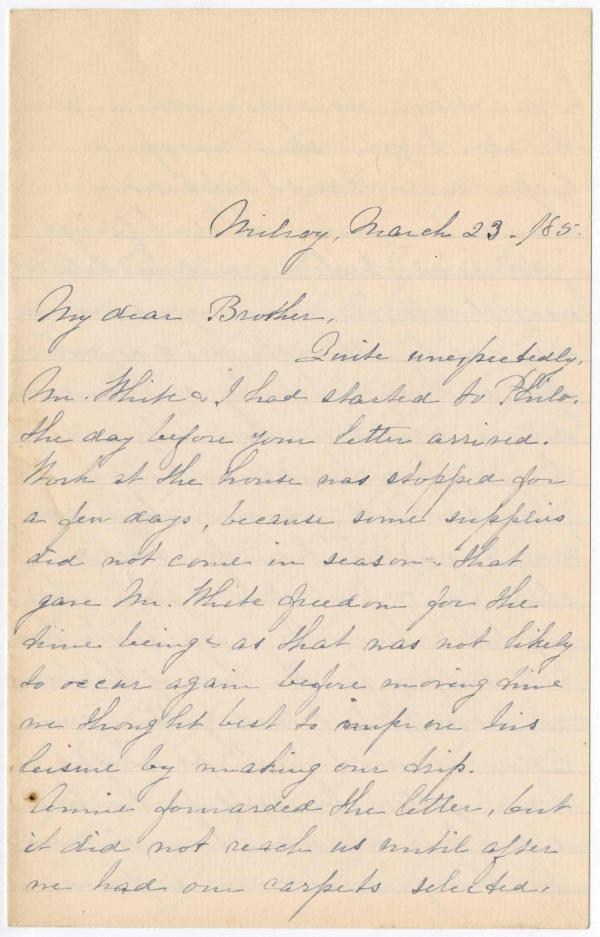 Milroy, March 23. /85.
My dear Brother,
Quite unexpectedly,
Mr. White & I had started to Phila.
the day before your letter arrived.
Work at the house was stopped for
a few days, because some supplies
did not come in season & that
gave Mr. White freedom for the
time being & as that was not likely
to occur again before moving time
we thought best to improve his
leisure by making our trip.
Annie forwarded the letter, but
it did not reach us until after
we had our carpets selected.